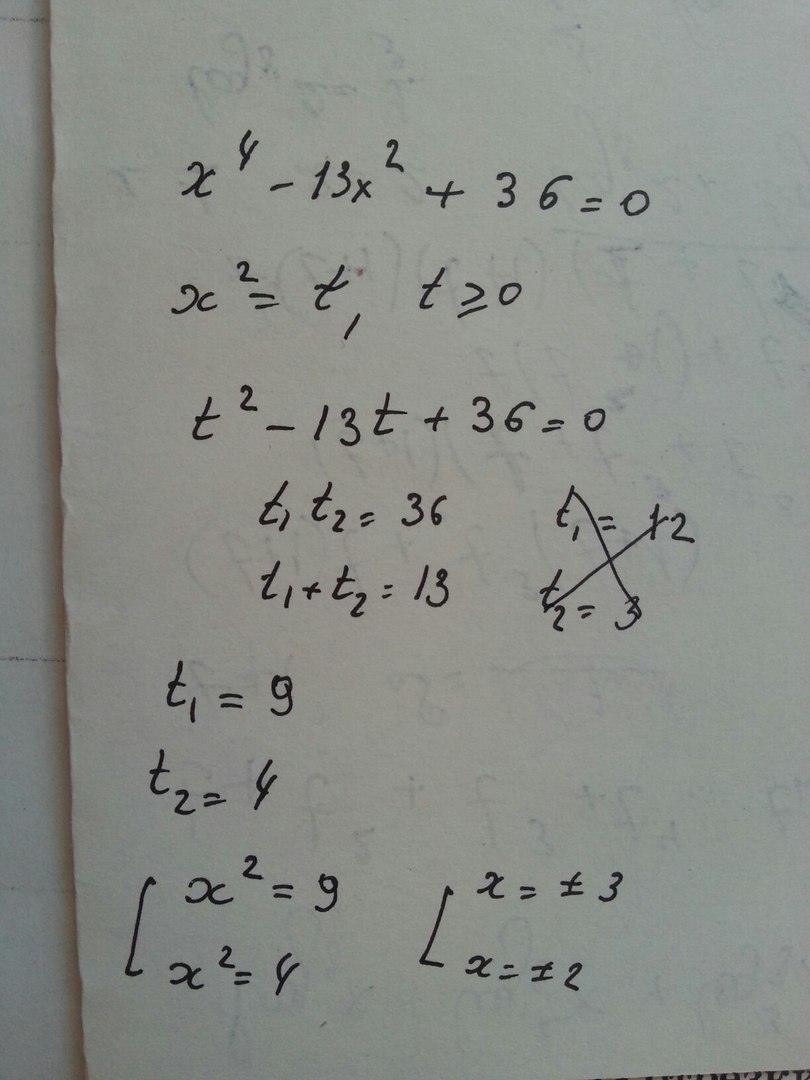 x⁴ - 13x² + 36 = 0
x² = t, t ≥ 0
t² - 13t + 36 = 0
t₁ t₂ = 36 t₁ = 12
t₁ + t₂ = 13 t₂ = 3
t₁ = 9
t₂ = 4
[ x² = 9 [ x = ± 3
x² = 4 x = ± 2